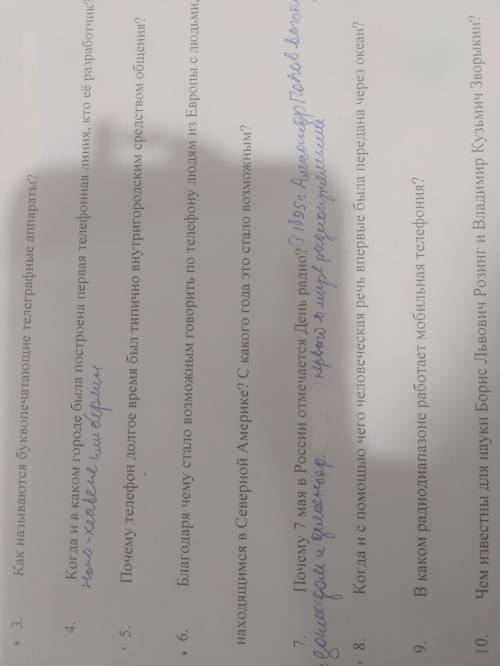 3. Как называются буквопечатающие телеграфные аппараты?
4. Когда и в каком городе была построена первая телефонная линия, кто её разработчик?
или берлин
5. Почему телефон долгое время был типично внутригородским средством общения?
6. Благодаря чему стало возможным говорить по телефону людям из Европы с людьми,
находящимся в Северной Америке? С какого года это стало возможным?
7. Почему 7 мая в России отмечается День радио? Александр Попов
первый в мире
8. Когда и с помощью чего человеческая речь впервые была передана через океан?
9. В каком радиодиапазоне работает мобильная телефония?
10. Чем известны для науки Борис Львович Розинг и Владимир Кузьмич Зворыкин?